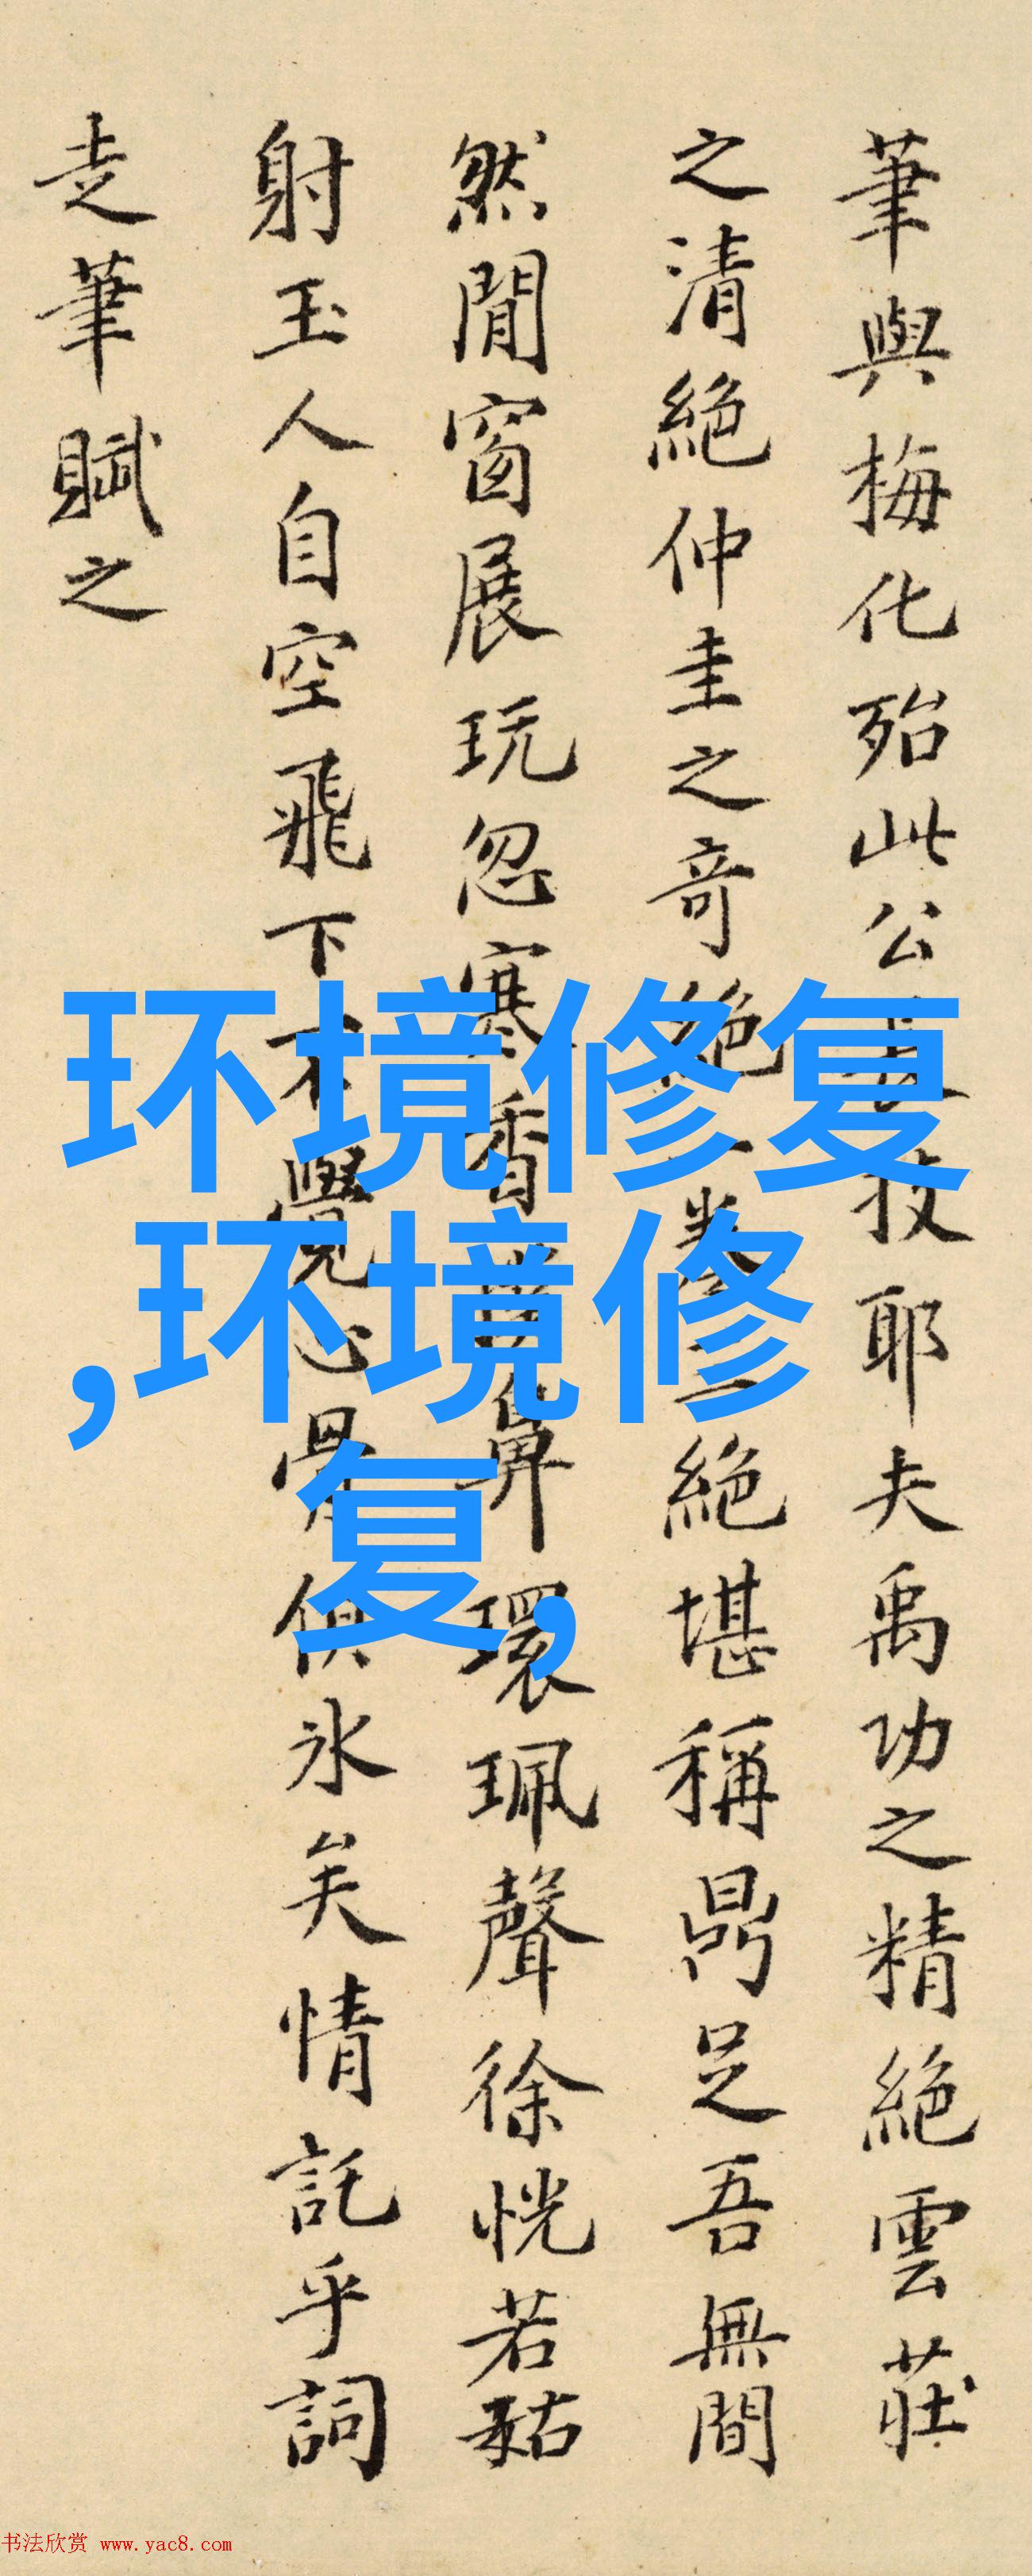 筆與梅化殆此公 技耶夫禹功之精絕雲莊
之清絕仲圭之奇絕一卷三絕堪稱鼎足吾無間
然閒窗展玩忽寒香 鼻環珮聲徐恍若藐
射玉人自空飛下不覺心骨俱氷矣情託乎詞
走筆賦之
环境修复
,环境修
复,
书法欣赏 www.yac8.com